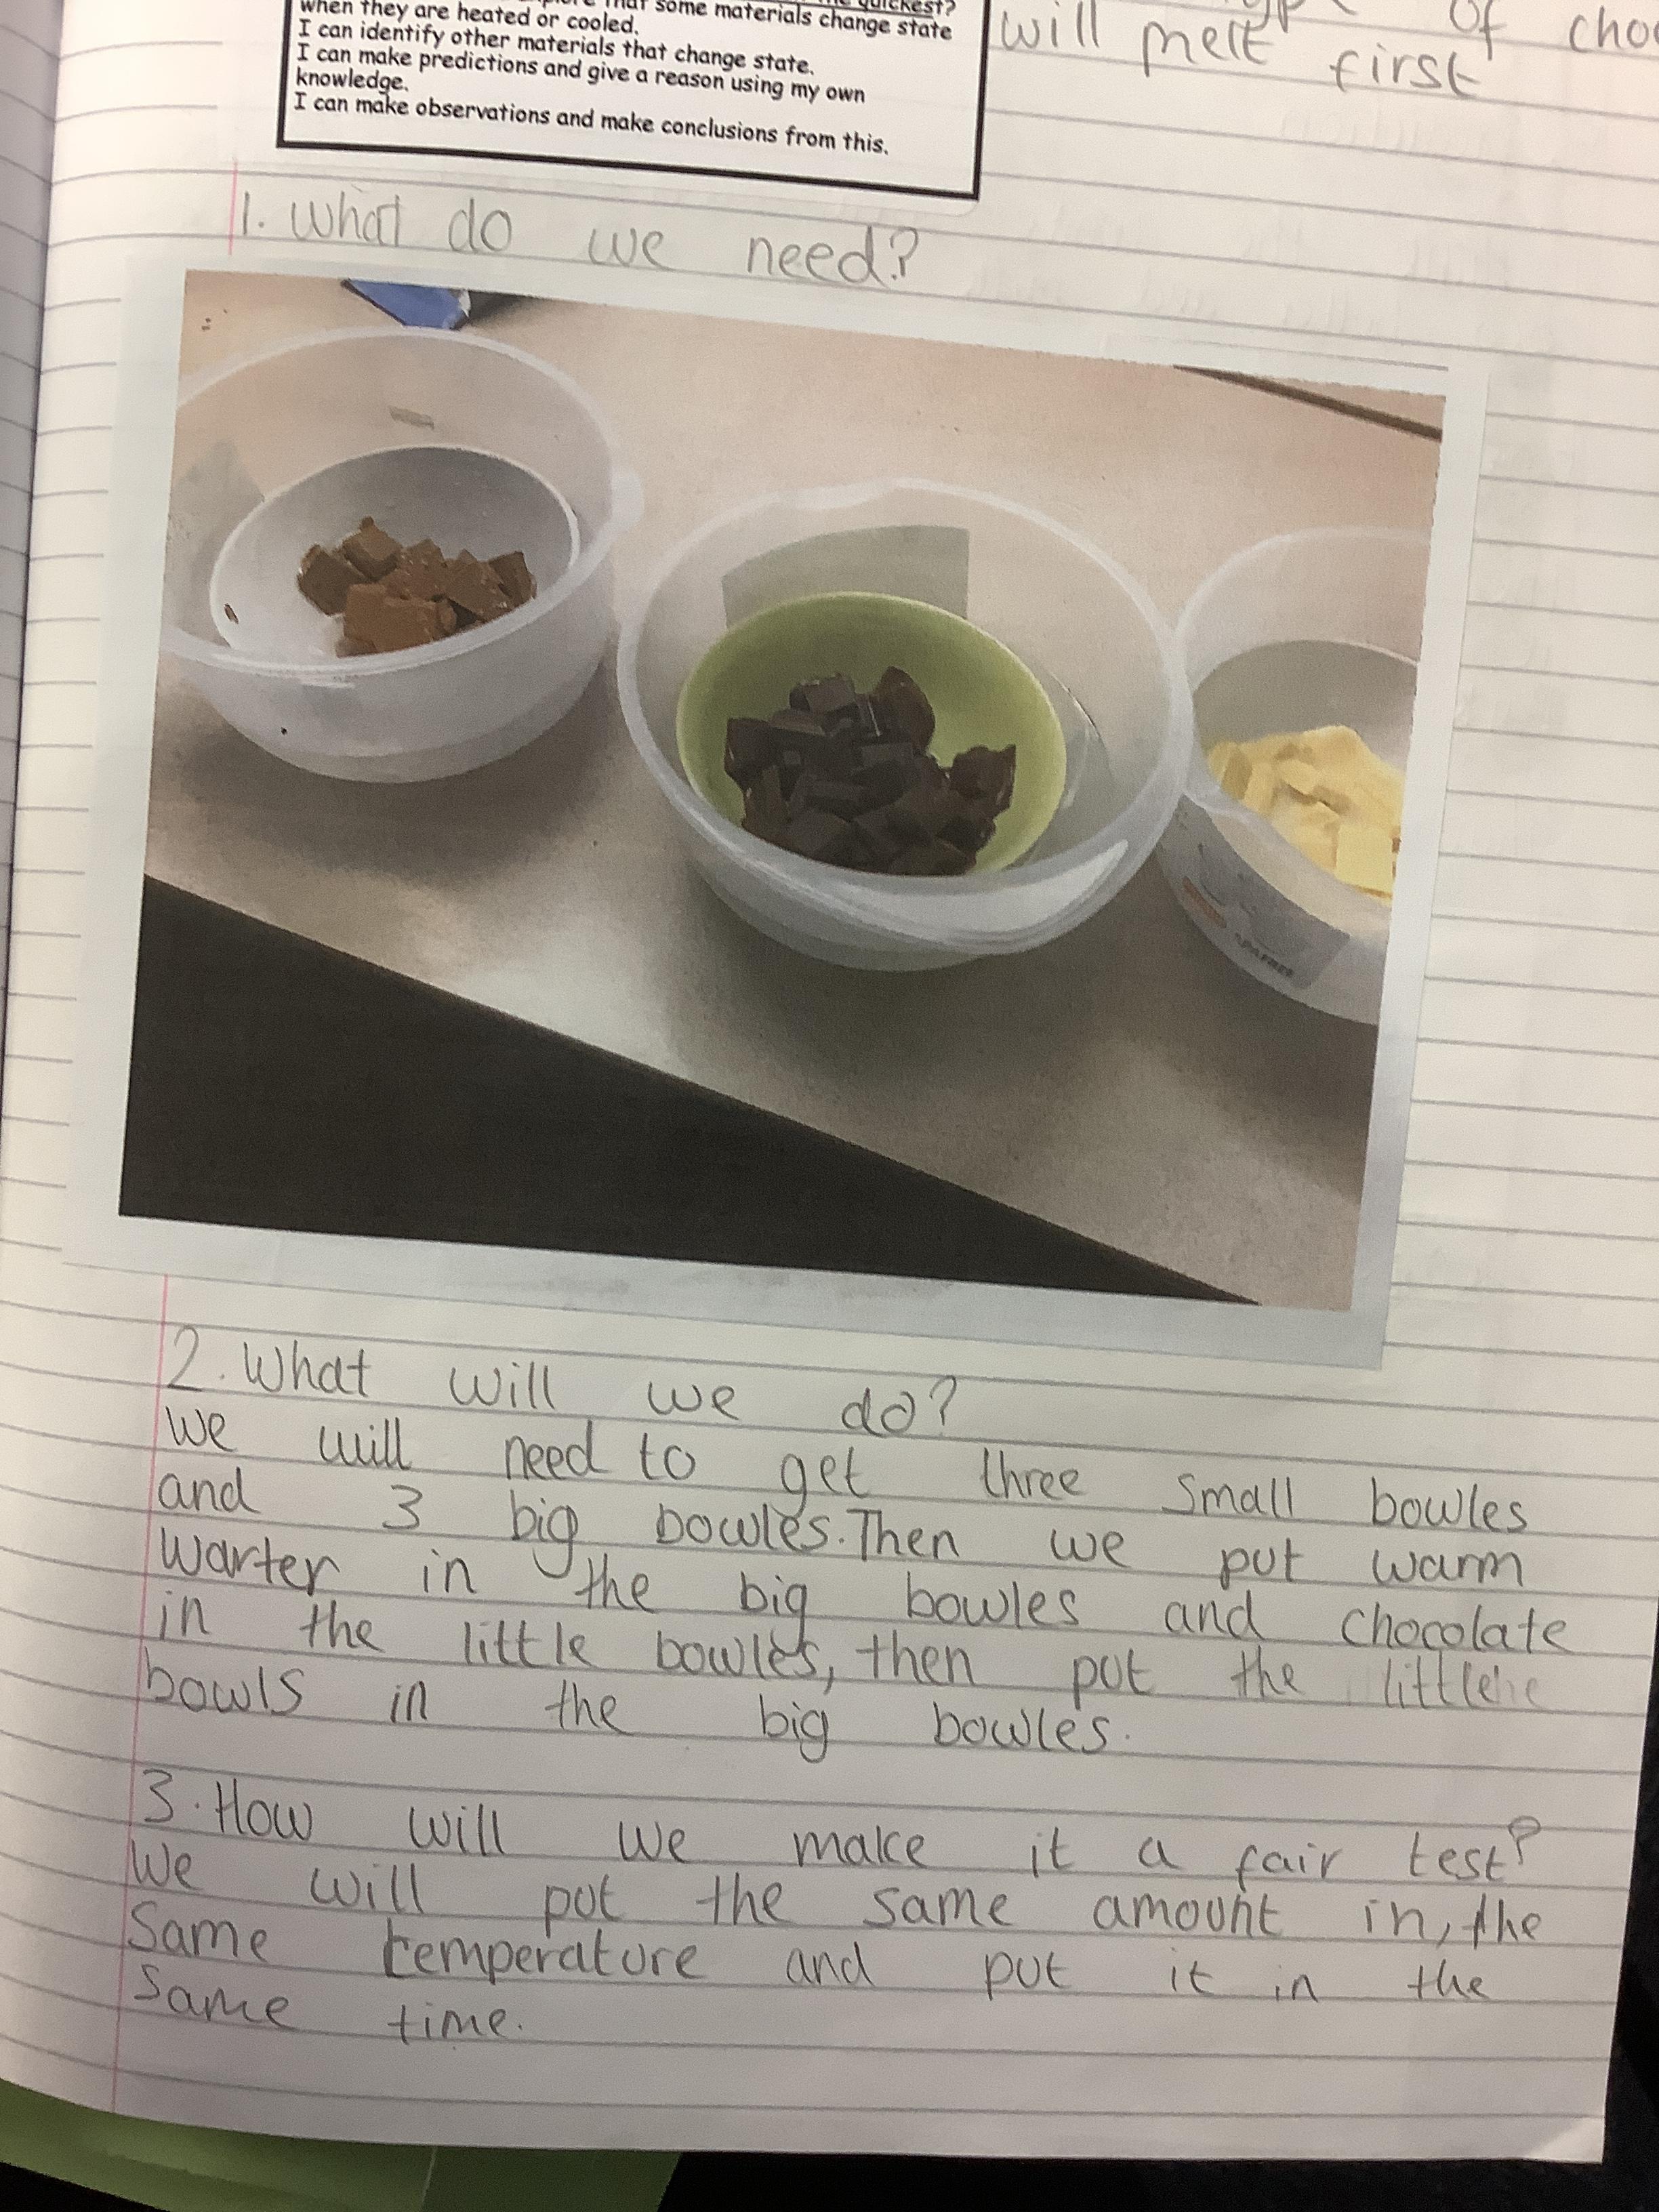 that some materials change state
when they are heated or cooled.
I can identify other materials that change state.
I can make predictions and give a reason using my own
knowledge.
I can make observations and make conclusions from this.
of
will melt first
1. What do we need?
2. What will we do?
we will need to get three small bowles
and 3 big bowles. Then we put warm
warter in the big bowles and chocolate
in the little bowles, then put the little
bowls in the big bowles.
3. How will we make it a fair test?
We will put the same amount in, the
Same temperature and put it in the
Same time.